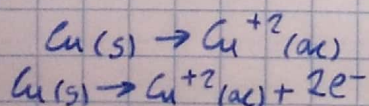 Cu (s) → Cu⁺² (ac)
Cu (s) → Cu⁺² (ac) + 2e⁻